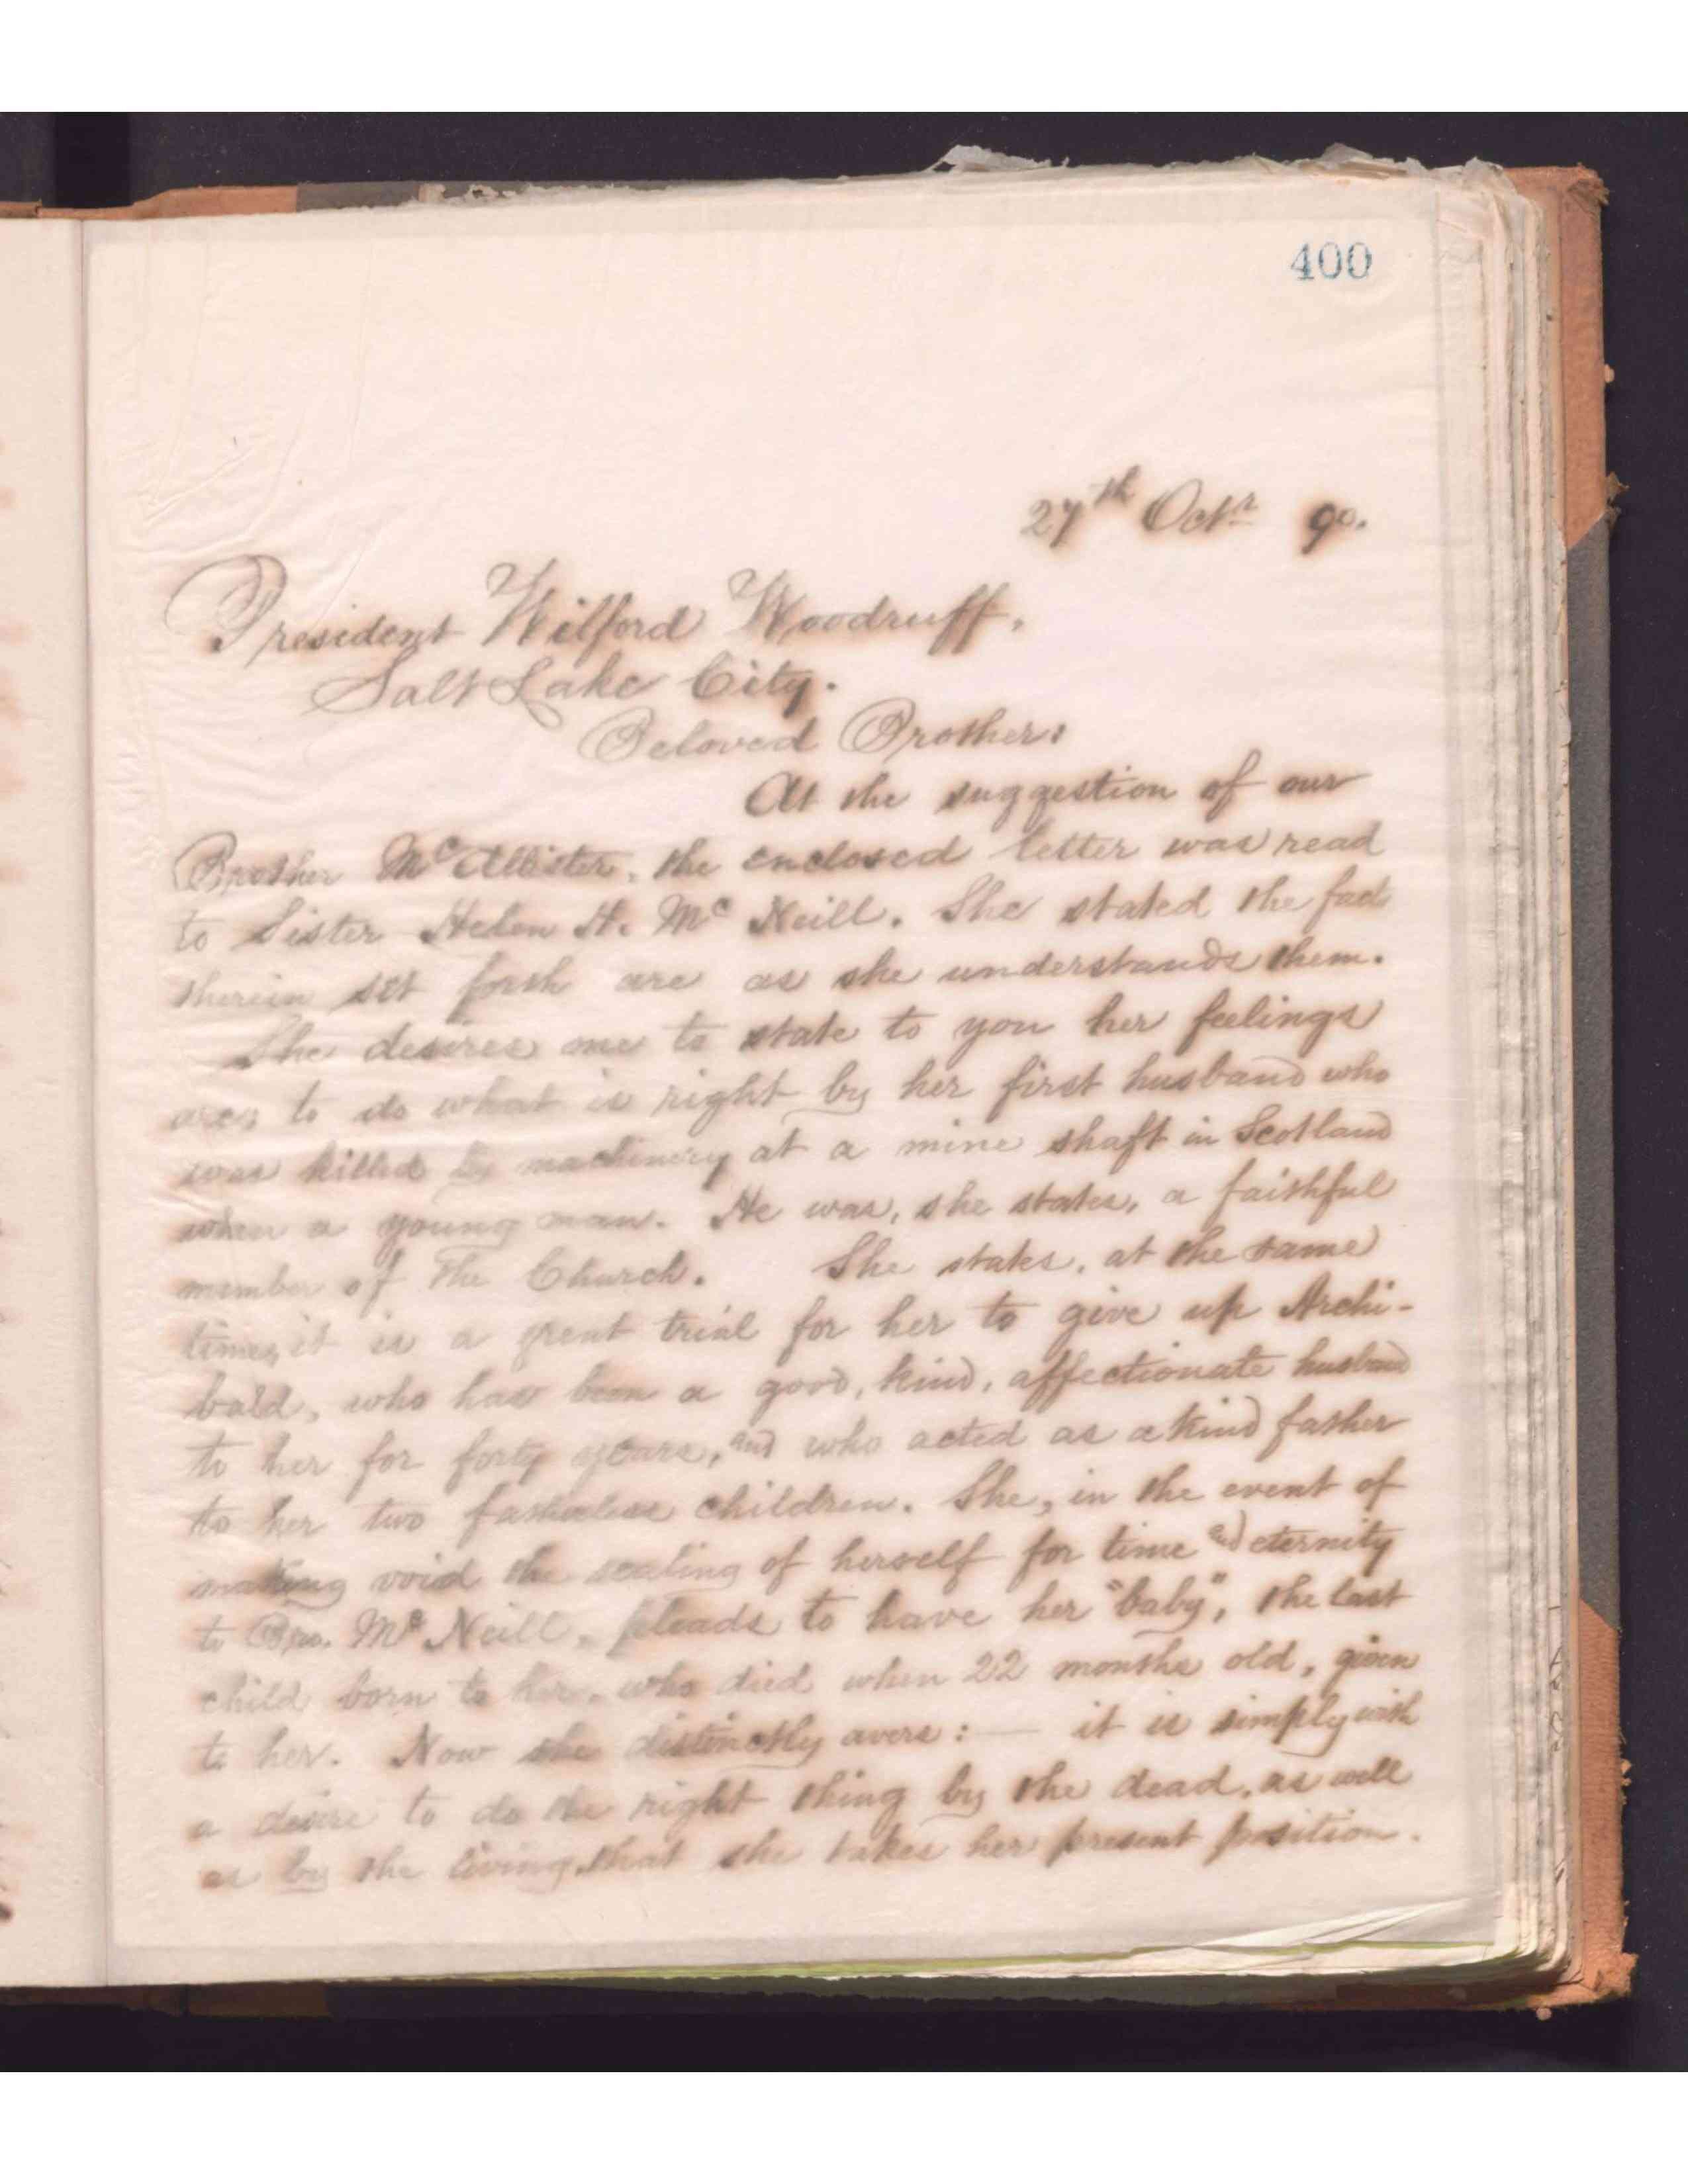 400
27th Octr 90.
President Wilford Woodruff,
Salt Lake City.
Beloved Brother:
At the suggestion of our
Brother McAllister, the enclosed letter was read
to Sister Helen H. McNeill. She stated the fact
therein set forth are as she understands them.
She desires me to state to you her feelings
are, to do what is right by her first husband who
was killed by machinery at a mine shaft in Scotland
when a young man. He was, she states, a faithful
member of The Church. She states, at the same
time, it is a great trial for her to give up Archi-
bald, who has been a good, kind, affectionate husband
to her for forty years, and who acted as a kind father
to her two fatherless children. She, in the event of
making void the sealing of herself for time and eternity
to Bro. McNeill, pleads to have her "baby", the last
child born to her, who died when 22 months old, given
to her. Now she distinctly avers: — it is simply with
a desire to do the right thing by the dead, as well
as by the living, that she takes her present position.